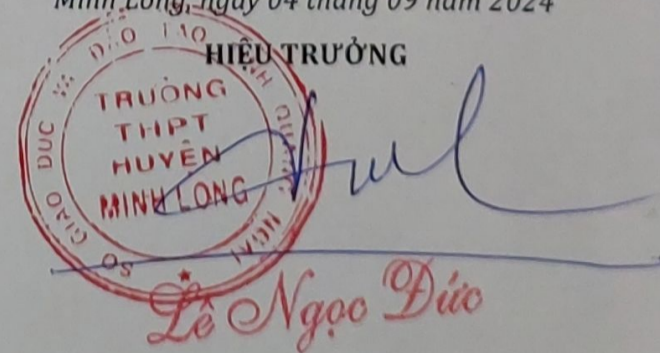 Minh Long, ngày 04 tháng 09 năm 2024
HIỆU TRƯỞNG
SỞ GIÁO DỤC VÀ ĐÀO TẠO TỈNH QUẢNG NGÃI
TRƯỜNG
THPT
HUYỆN
MINH LONG
Lê Ngọc Đức